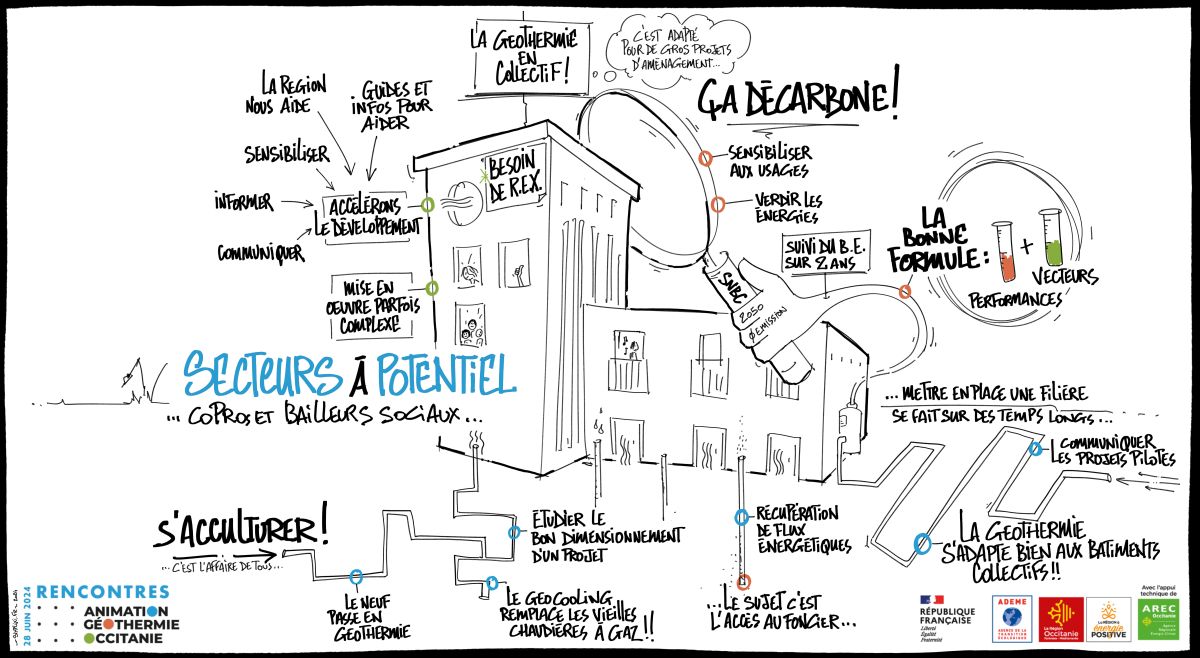 LA GÉOTHERMIE
EN
COLLECTIF !
C'EST ADAPTÉ
POUR DE GROS PROJETS
D'AMÉNAGEMENT...
ÇA DÉCARBONE !
LA RÉGION
NOUS AIDE
GUIDES ET
INFOS POUR
AIDER
SENSIBILISER
INFORMER
COMMUNIQUER
ACCÉLÉRONS
LE DÉVELOPPEMENT
BESOIN
DE R.EX.
MISE EN
OEUVRE PARFOIS
COMPLEXE
SENSIBILISER
AUX USAGES
VERDIR LES
ÉNERGIES
SUIVI DU B.E.
SUR 2 ANS
SNBC
2050
0 EMISSION
LA
BONNE
FORMULE :
+
VECTEURS
PERFORMANCES
SECTEURS À POTENTIEL
... COPROS ET BAILLEURS SOCIAUX ...
... METTRE EN PLACE UNE FILIÈRE
SE FAIT SUR DES TEMPS LONGS ...
COMMUNIQUER
LES PROJETS PILOTES
LA GÉOTHERMIE
S'ADAPTE BIEN AUX BATIMENTS
COLLECTIFS !!
S'ACCULTURER !
... C'EST L'AFFAIRE DE TOUS ...
LE NEUF
PASSE EN
GÉOTHERMIE
ÉTUDIER LE
BON DIMENSIONNEMENT
D'UN PROJET
LE GEOCOOLING
REMPLACE LES VIEILLES
CHAUDIÈRES À GAZ !!
RÉCUPÉRATION
DE FLUX
ÉNERGÉTIQUES
... LE SUJET C'EST
L'ACCÈS AU FONCIER ...
28 JUIN 2024
RENCONTRES
ANIMATION
GÉOTHERMIE
OCCITANIE
RÉPUBLIQUE
FRANÇAISE
Liberté
Égalité
Fraternité
ADEME
AGENCE DE LA
TRANSITION
ÉCOLOGIQUE
La Région
Occitanie
Pyrénées - Méditerranée
La RÉGION à
énergie
POSITIVE
Avec l'appui
technique de
AREC
Occitanie
Agence
Régionale
Énergie Climat